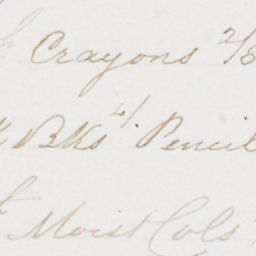 Crayons 2/8
Bks 4/ Pencil
Moist Cols